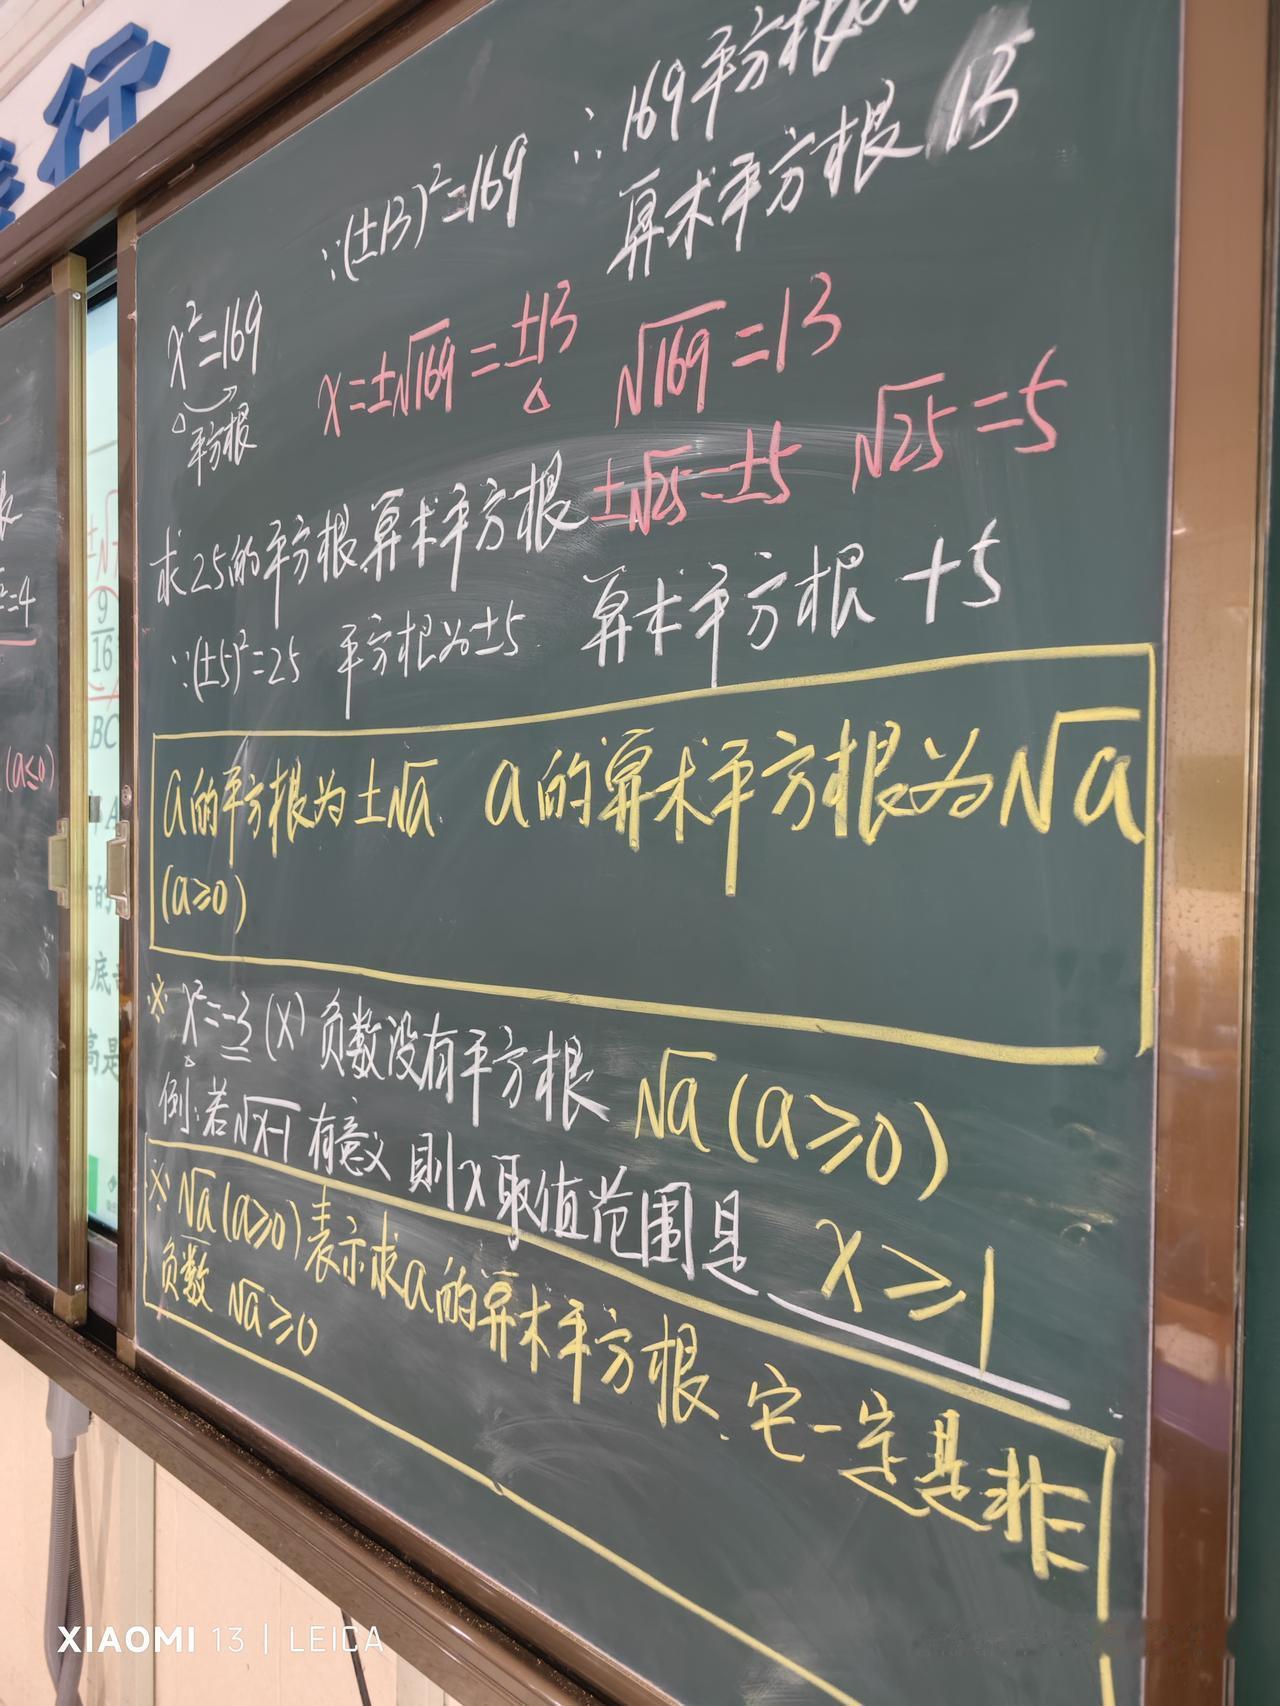 行
∴169平方根
∵(±13)²=169
算术平方根 13
x²=169
平方根
x=±√169=±13
√169=13
求25的平方根.算术平方根 ±√25=±5 √25=5
∵(±5)²=25 平方根为±5. 算术平方根 +5
a的平方根为±√a. a的算术平方根为√a
(a≥0)
※ x²=-3(X) 负数没有平方根 √a(a≥0)
例:若√x-1有意义 则x取值范围是 x≥1
※√a(a≥0)表示求a的算术平方根.它一定是非
负数 √a≥0
=4
(a≤0)
±√
9
16
BC
A
的
底
高是
XIAOMI 13 | LEICA